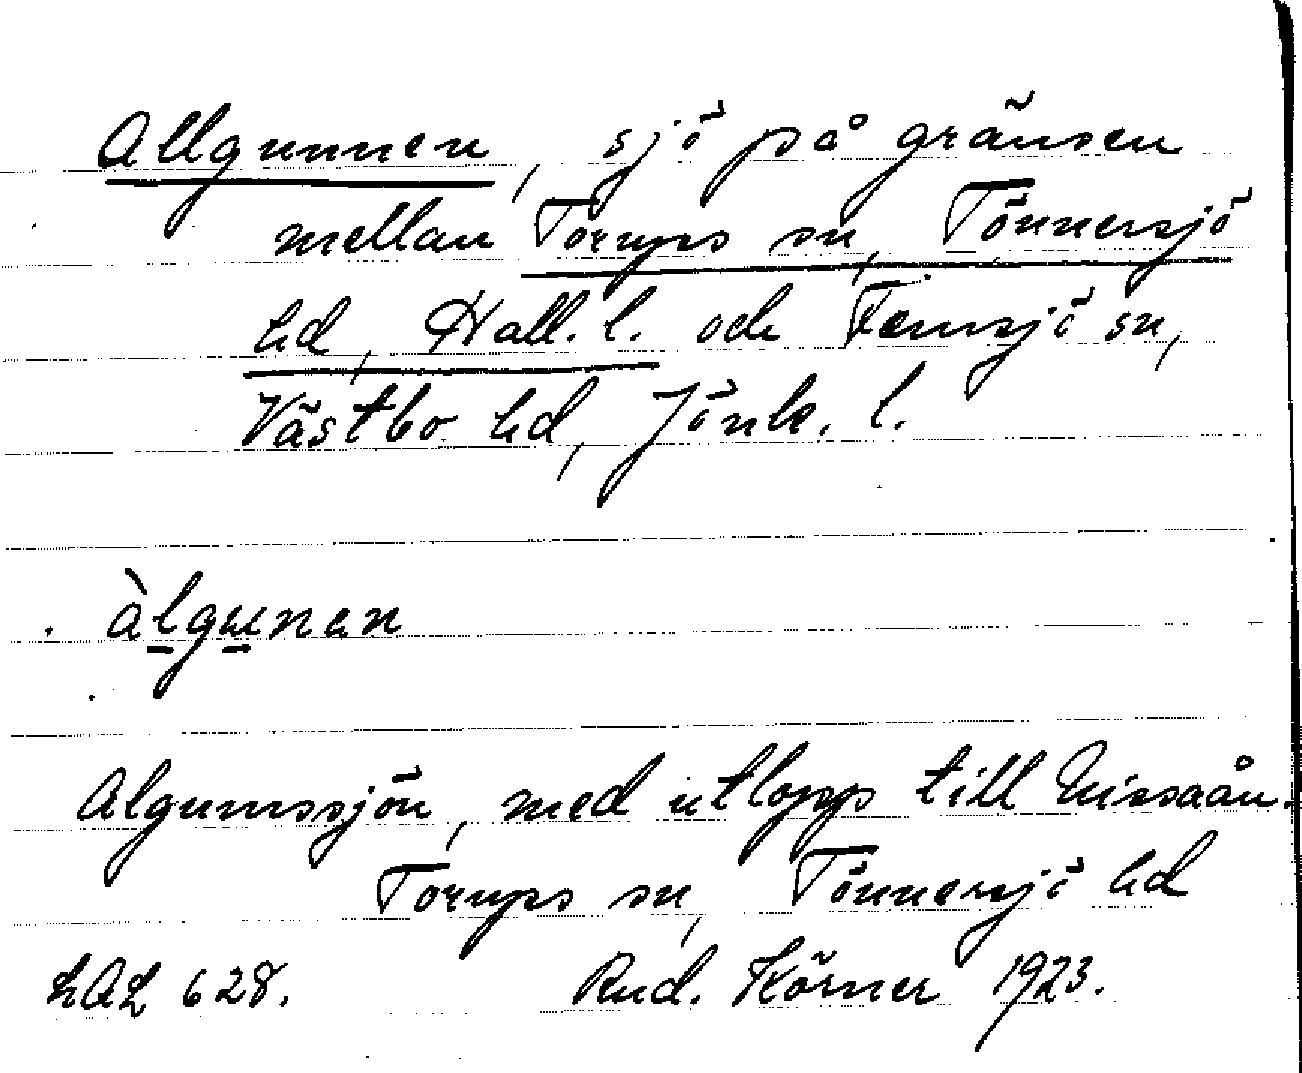 Allgunnen, sjö på gränsen
mellan Torups sn, Tönnersjö
hd, Hall. l. och Femsjö sn,
Västbo hd, Jönk. l.
àlgunən
Algumssjön, med utlopp till Nissaån.
Torups sn, Tönnersjö hd
LAL 628. Rud. Körner 1923.